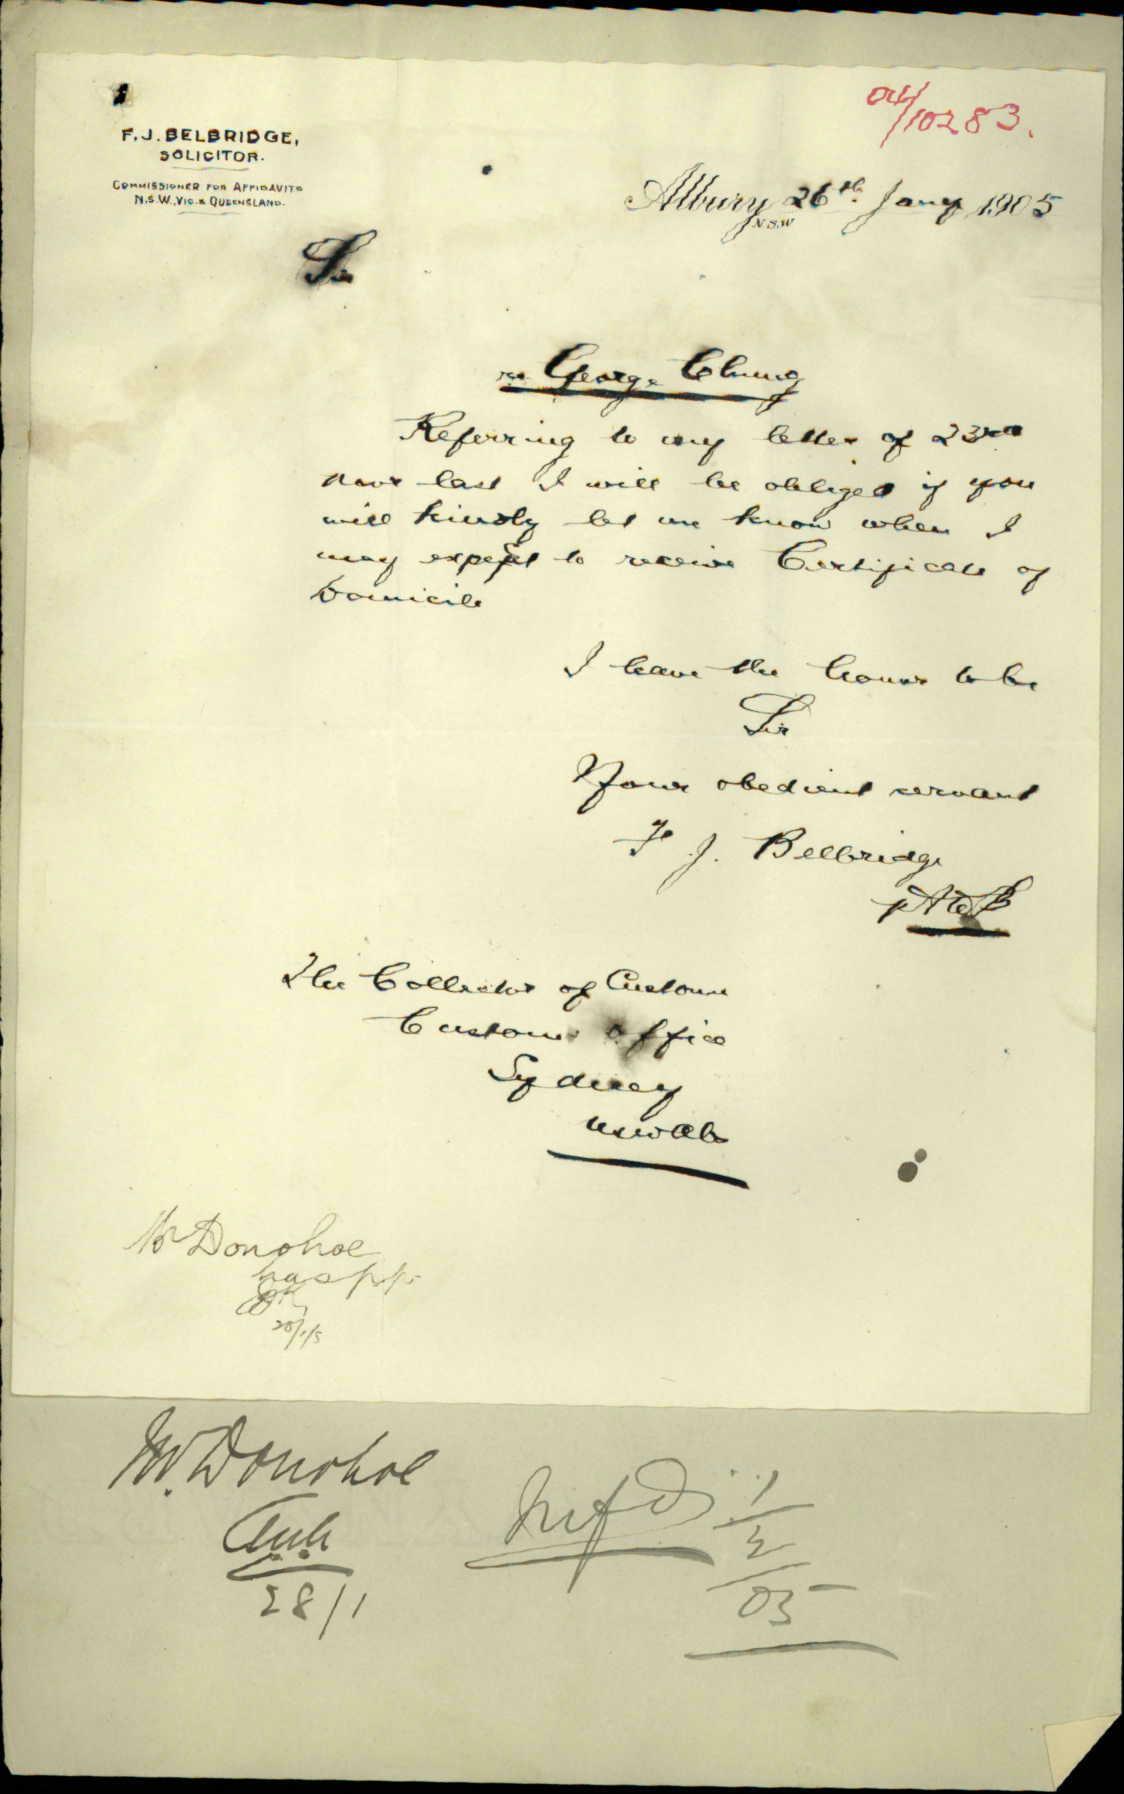 F. J. BELBRIDGE,
SOLICITOR.
COMMISSIONER FOR AFFIDAVITS
N.S.W., VIC. & QUEENSLAND.
04/10283.
Albury 26th Jany 1905
N.S.W
Sir
re George Chung
Referring to my letter of 23rd
Novr last I will be obliged if you
will kindly let me know when I
may expect to receive Certificate of
Domicile
I have the honor to be
Sir
Your obedient servant
F. J. Belbridge
The Collector of Customs
Customs Office
Sydney
NSWales
Mr Donohoe
has
28/1/5
Mr. Donohoe
28/1
1/2/05